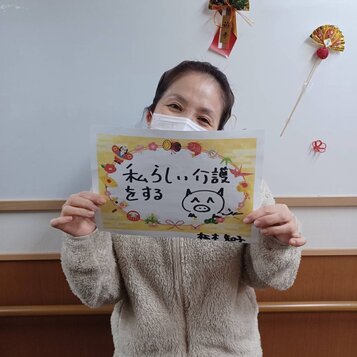 私らしい介護
をする